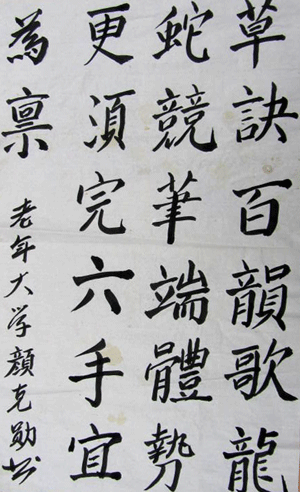 草訣百韻歌龍
蛇競筆端體勢
更須完六手宜
為禀
老年大学顔克勋书